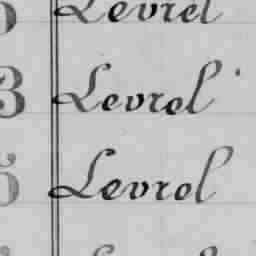 Levrel
3 Levrel
5 Levrol